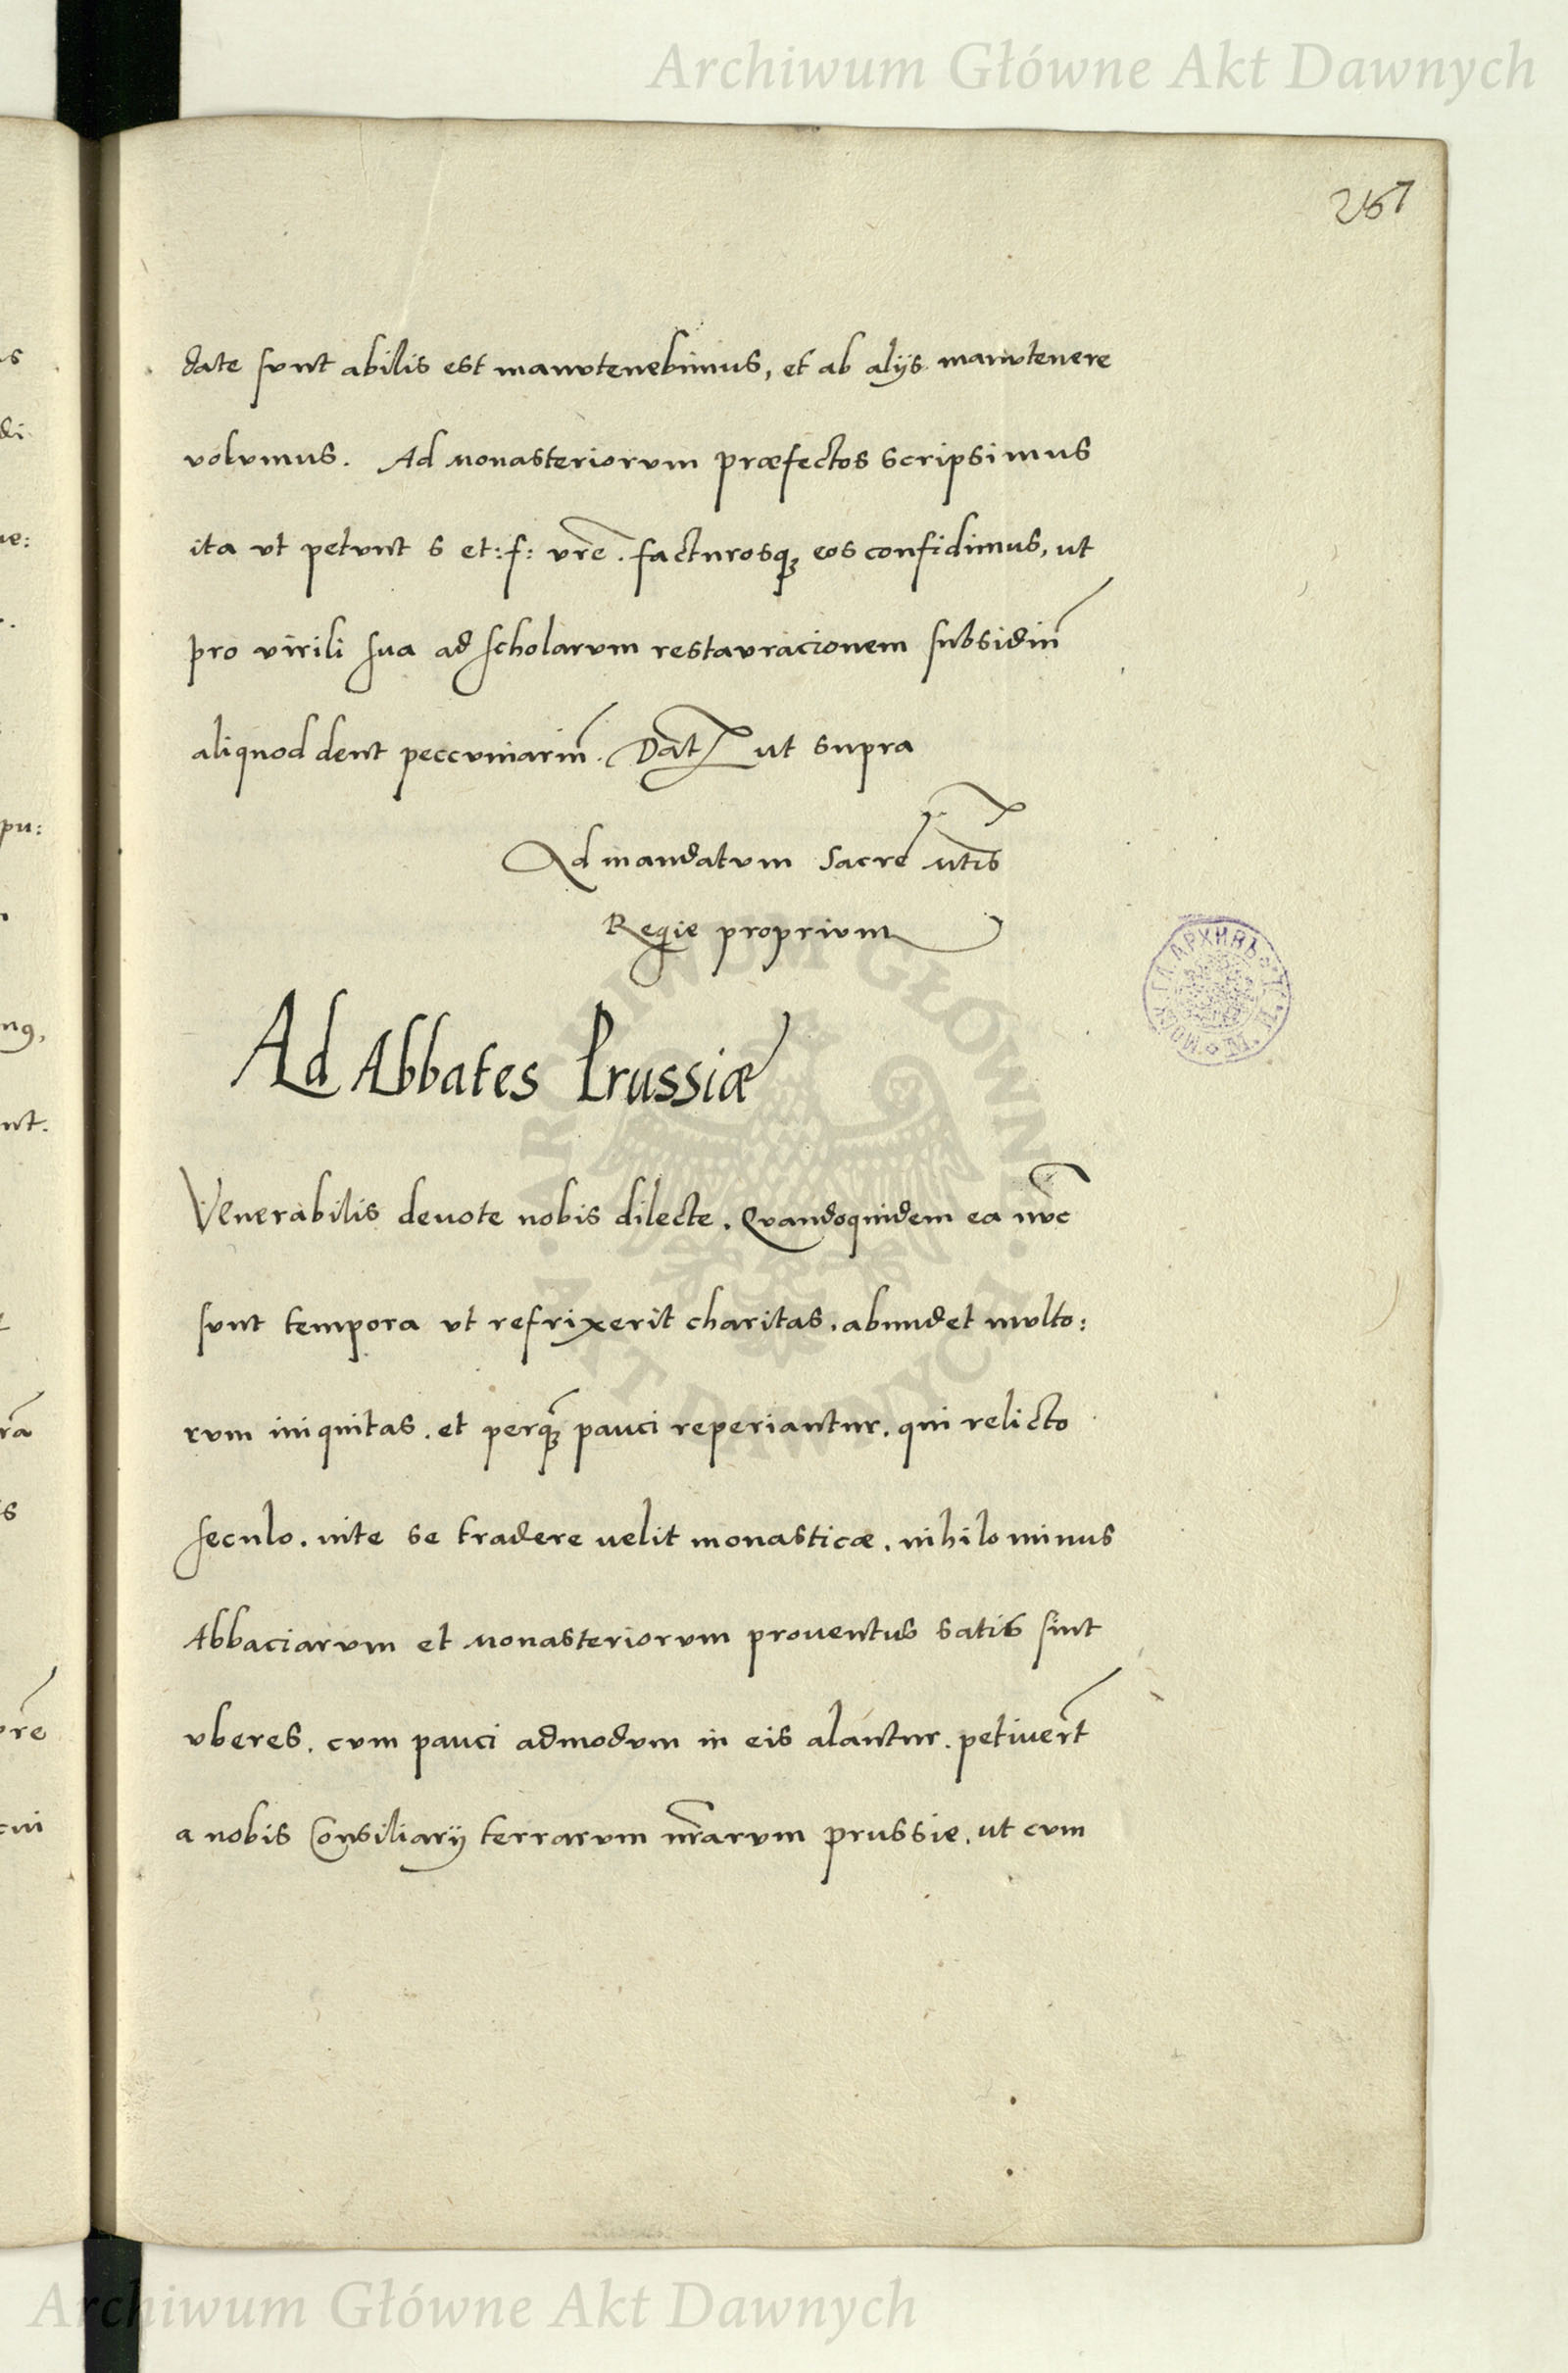 Archiwum Główne Akt Dawnych
257
date sunt abilis est manutenebimus, et ab alijs manutenere
volumus. Ad monasteriorum præfectos scripsimus
ita ut petunt s et: f: vre. facturosq, eos confidimus, ut
pro virili sua ad scholarum restauracionem subsidiu
aliquod dent peccuniariu. Dat ut supra
Ad mandatum Sacre mtis
Regie proprium
Ad Abbates Prussiæ
Venerabilis devote nobis dilecte. Quandoquidem ea nuc
sunt tempora ut refrixerit charitas. abundet multo:
rum iniquitas. et perq pauci reperiantur. qui relicto
seculo. vite se tradere velit monasticæ. nihilominus
Abbaciarum et monasteriorum proventus satis sint
uberes. cum pauci admodum in eis alantur. petivert
a nobis Consiliarij terrarum nrarum prussie. ut cum
Archiwum Główne Akt Dawnych